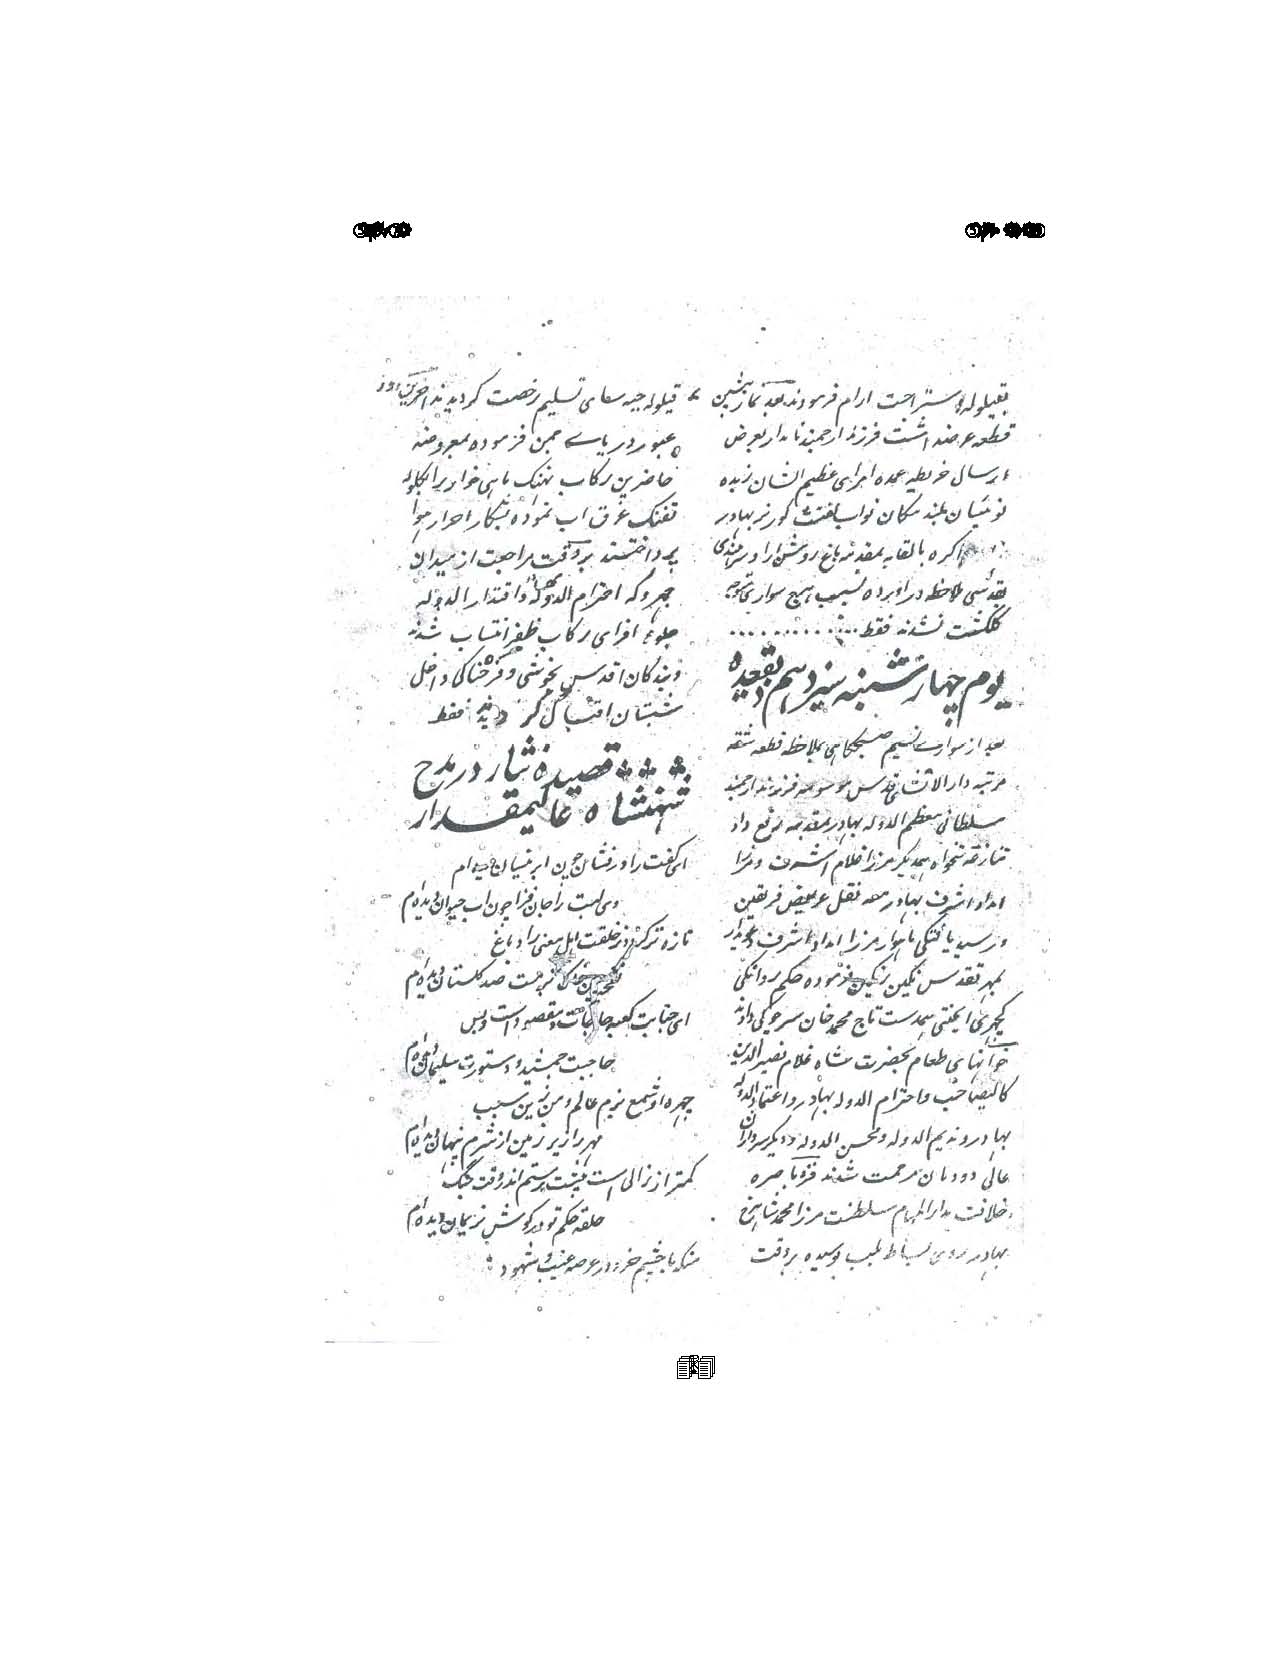 بقیلوله و استراحت ارام فرمودند بعد نماز پیشین
قطعه عرضداشت فرزند ارجمند نامدار بعرض
ارسال خریطه عمده امرای عظیم الشان زبده
نوئینان بلند مکان نواب لفتنت گورنر بهادر
اکره بالقابه بمقدمه باغ روشن ارا و سرهندی
بقدسی ملاحظه در اورده بسبب هیچ سواری متوجه
گلگشت نشدند فقط
یوم چهارشنبه سیزدهم ذیقعده
بعد از سواری نسیم صبحگاهی بملاحظه قطعه شقه
مرتبه دار الانشای قدس موسومه فرزند ارجمند
سلطانی معظم الدوله بهادر بمقدمه رفع داد
تنازعه تنخواه همدیگر مرزا غلام اشرف و مرزا
امداد اشرف بهادر معه نقل عرایض فریقین
و رسید یافتگی ماهوار مرزا امداد اشرف
بمهر تقدس نگین فرموده حکم روانگی
کچهری ایجنتی بدست تاج محمد خان سرچوکی دادند
خوانهای طعام بحضرت شاه غلام نصیر الدین
کالیصاحب و احترام الدوله بهادر و اعتماد الدوله
بهادر و ندیم الدوله و محسن الدوله و دیگر سرداران
عالی دودمان مرحمت شدند قره باصره
خلافت مدار المهام سلطنت مرزا محمد شاهرخ
بهادر بساط بلب بوسیده بر وقت
قیلوله جبه سای تسلیم رخصت گردیدند اخرین روز
عبور دریای جمن فرموده بمعروضه
حاضرین رکاب نهنگ ماهی خوار را بگلوله
تفنگ غرق اب نموده بشکار احرار هوا
پرداختند بروقت مراجعت از میدان
جهروکه احترام الدوله بهادر و اقتدار الدوله
جلوه افزای رکاب ظفر انتساب شدند
و بندگان اقدس بخوشی و فرحناکی داخل
شبستان اقبال گردیدند فقط
قصیده نثار در مدح
شهنشاه عالیمقدار
ای کفت را درفشان چون ابر نیسان دیده ام
وی لبت را جان فزا چون اب حیوان دیده ام
تازه تر کردد ز خلقت اهل معنی را دماغ
نزهت صد گلستان دیده ام
ای جنابت کعبه حاجات و مقصود است و بس
حاجبت جمشید و دستورت سلیمان دیده ام
چهره او شمع بزم عالم و من زین سبب
مهر را زیر زمین از شرم پنهان دیده ام
کمتر از زالی است پیشت رستم اندر وقت جنگ
حلقه حکم تو در گوش نریمان دیده ام
منکه با چشم خرد در عرصه غیب و شهود